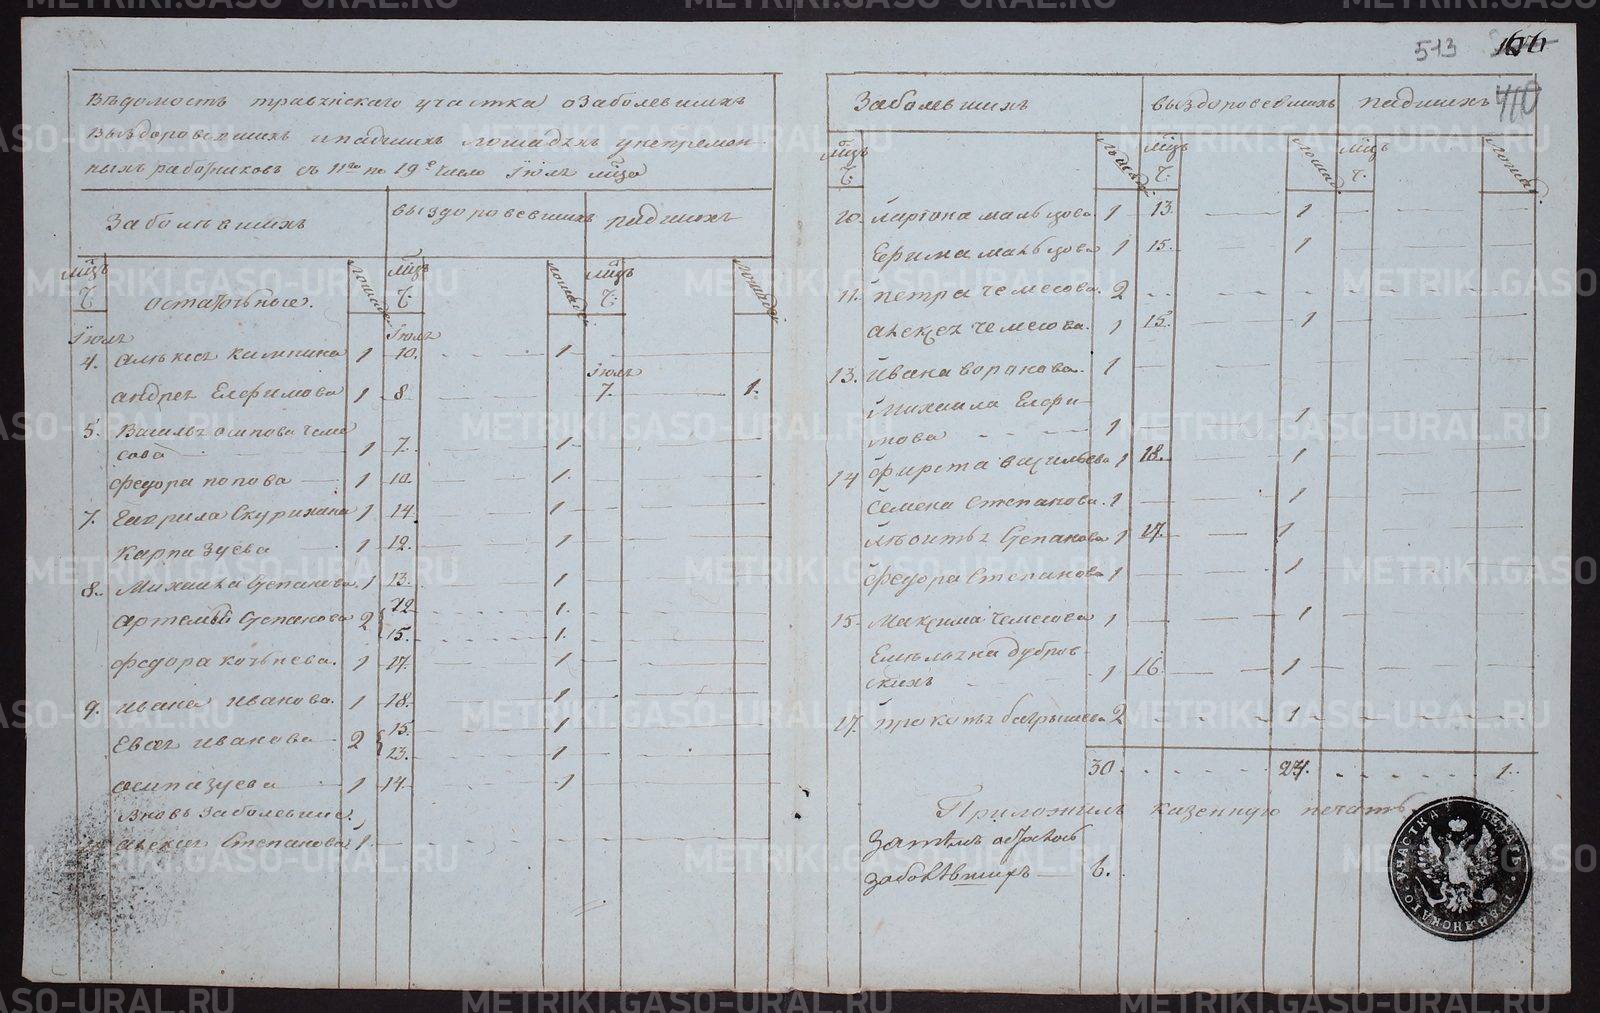 513
166
410
Вѣдомость травянскаго участка о Заболевшихъ
выздоровевшихъ и падшихъ лошадяхъ у непремен-
ныхъ работниковъ съ 11го по 19е число Iюля мѣца
Заболѣвшихъ выздоровевшихъ падшихъ
мѣцъ Ч: остаточные. лошадей мѣцъ Ч: лошадей мѣцъ Ч: лошадей
Iюля Iюля
4. алексея 1 10. 1
Iюля
андрея Елефимова 1 8 7. 1.
5. Василья осипова Чеме
сова 1 7. 1
федора попова 1 10. 1
7. Гаврила Скурихина 1 14. 1
Карпа Зуева 1 12. 1
8. Михаила Степанова 1 13. 1
артемья Степанова 2 12 1.
15. 1.
федора 1 17. 1
9. ивана иванова. 1 18. 1
Евсея иванова 2 15. 1
23. 1
осипа зуева 1 14. 1
Вновь заболевшие.
алексея Степанова 1.
Заболевшихъ выздоровевшихъ падшихъ
мѣцъ Ч: лошадей мѣцъ Ч: лошадей мѣцъ Ч: лошадей
10. лариона мальцова 1 13. 1
Ефима мальцова 1 15. 1
11. петра чемесова. 2
алексея чемесова. 1 15. 1
13. ивана воронова. 1
Михаила Елефи-
мова 1 1
14 фирста васильева 1 18. 1
Семена Степанова. 1 1
леонтья Степанова 1 17. 1
федора Степанова 1 1
15. Максима Чемесова 1 1
Емельяна дубров
скихъ 1 16. 1
17. прокопья батрышева 2 1
30. 24. 1.
Приложилъ казенную печать
Затѣмъ осталось
заболѣвшихъ 6.
ПЕЧАТЬ ТРАВЯНСКАГО УЧАСТКА
METRIKI.GASO-URAL.RU